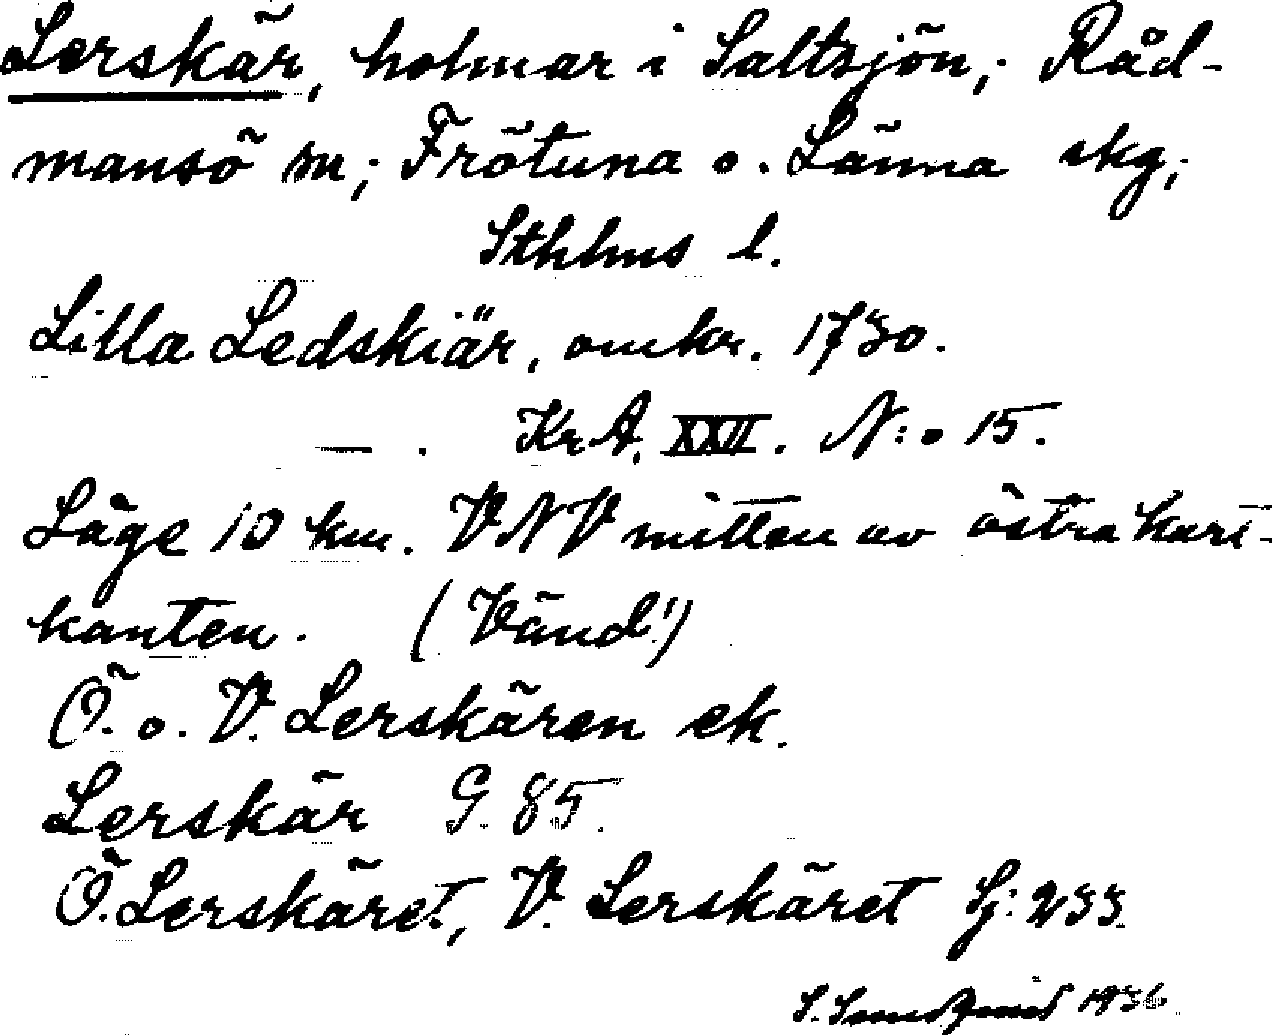 Lerskär, holmar i Saltsjön, Råd-
mansö sn; Frötuna o. Länna skg;
Sthlms l.
Lilla Ledskiär, omkr. 1730.
— . KrA, XXII. N:o 15.
Läge 10 km. VNV mitten av östra kart-
kanten. (Vänd!)
Ö. o. V. Lerskären ek.
Lerskär G. 85.
Ö. Lerskäret, V. Lerskäret Sj: 233.
S. 1936